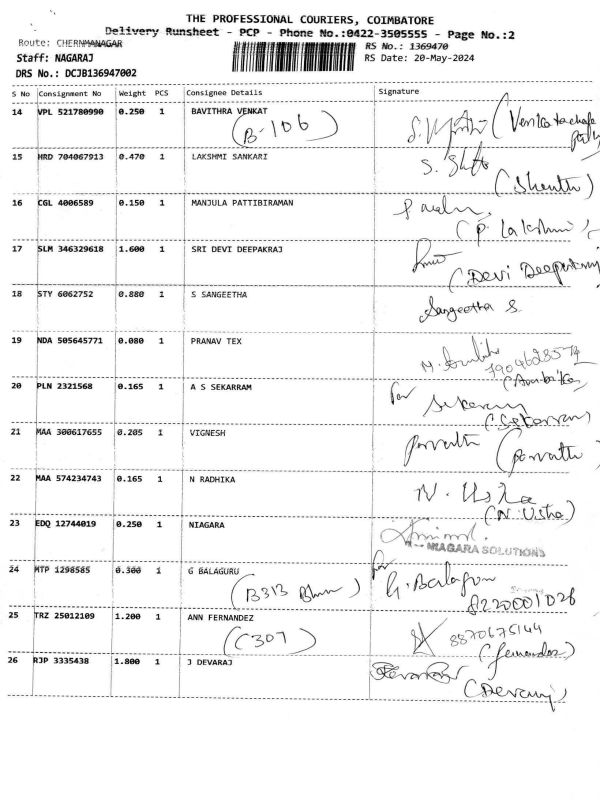 THE PROFESSIONAL COURIERS, COIMBATORE
Delivery Runsheet - PCP - Phone No.:0422-3505555 - Page No.:2
Route: CHERNMANAGAR RS No.: 1369470
Staff: NAGARAJ RS Date: 20-May-2024
DRS No.: DCJB136947002
S No Consignment No Weight PCS Consignee Details Signature
14 VPL 521780990 0.250 1 BAVITHRA VENKAT
(B-106)
15 HRD 704067913 0.470 1 LAKSHMI SANKARI
16 CGL 4006589 0.150 1 MANJULA PATTIBIRAMAN
(P. Lakshmi)
17 SLM 346329618 1.600 1 SRI DEVI DEEPAKRAJ
(Devi Deepakraj
18 STY 6062752 0.880 1 S SANGEETHA Sangeetha S.
19 NDA 505645771 0.080 1 PRANAV TEX
7904628574
20 PLN 2321568 0.165 1 A S SEKARRAM for
(Sekarram)
21 MAA 300617655 0.205 1 VIGNESH
22 MAA 574234743 0.165 1 N RADHIKA N. Usha
(N. Usha)
23 EDQ 12744019 0.250 1 NIAGARA
NIAGARA SOLUTIONS
24 MTP 1298585 0.300 1 G BALAGURU for G. Balaguru
(B313 8220001026
25 TRZ 25012109 1.200 1 ANN FERNANDEZ
(C307) 8870675144
(fernandez)
26 RJP 3335438 1.800 1 J DEVARAJ
(Devaraj)